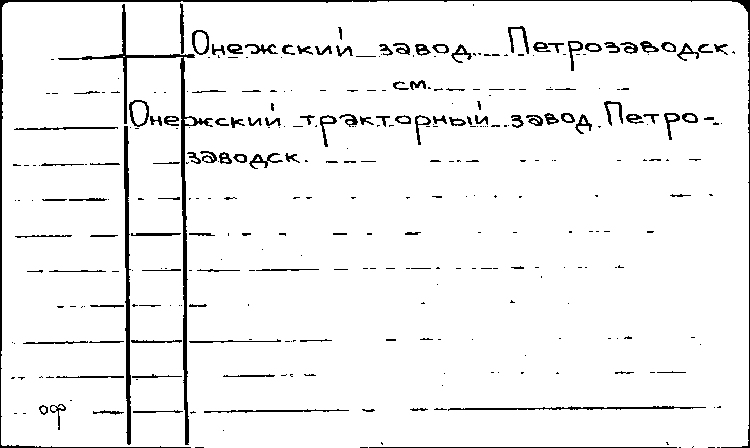 Онежский завод. Петрозаводск.
см.
Онежский тракторный завод. Петро-
заводск.
оф